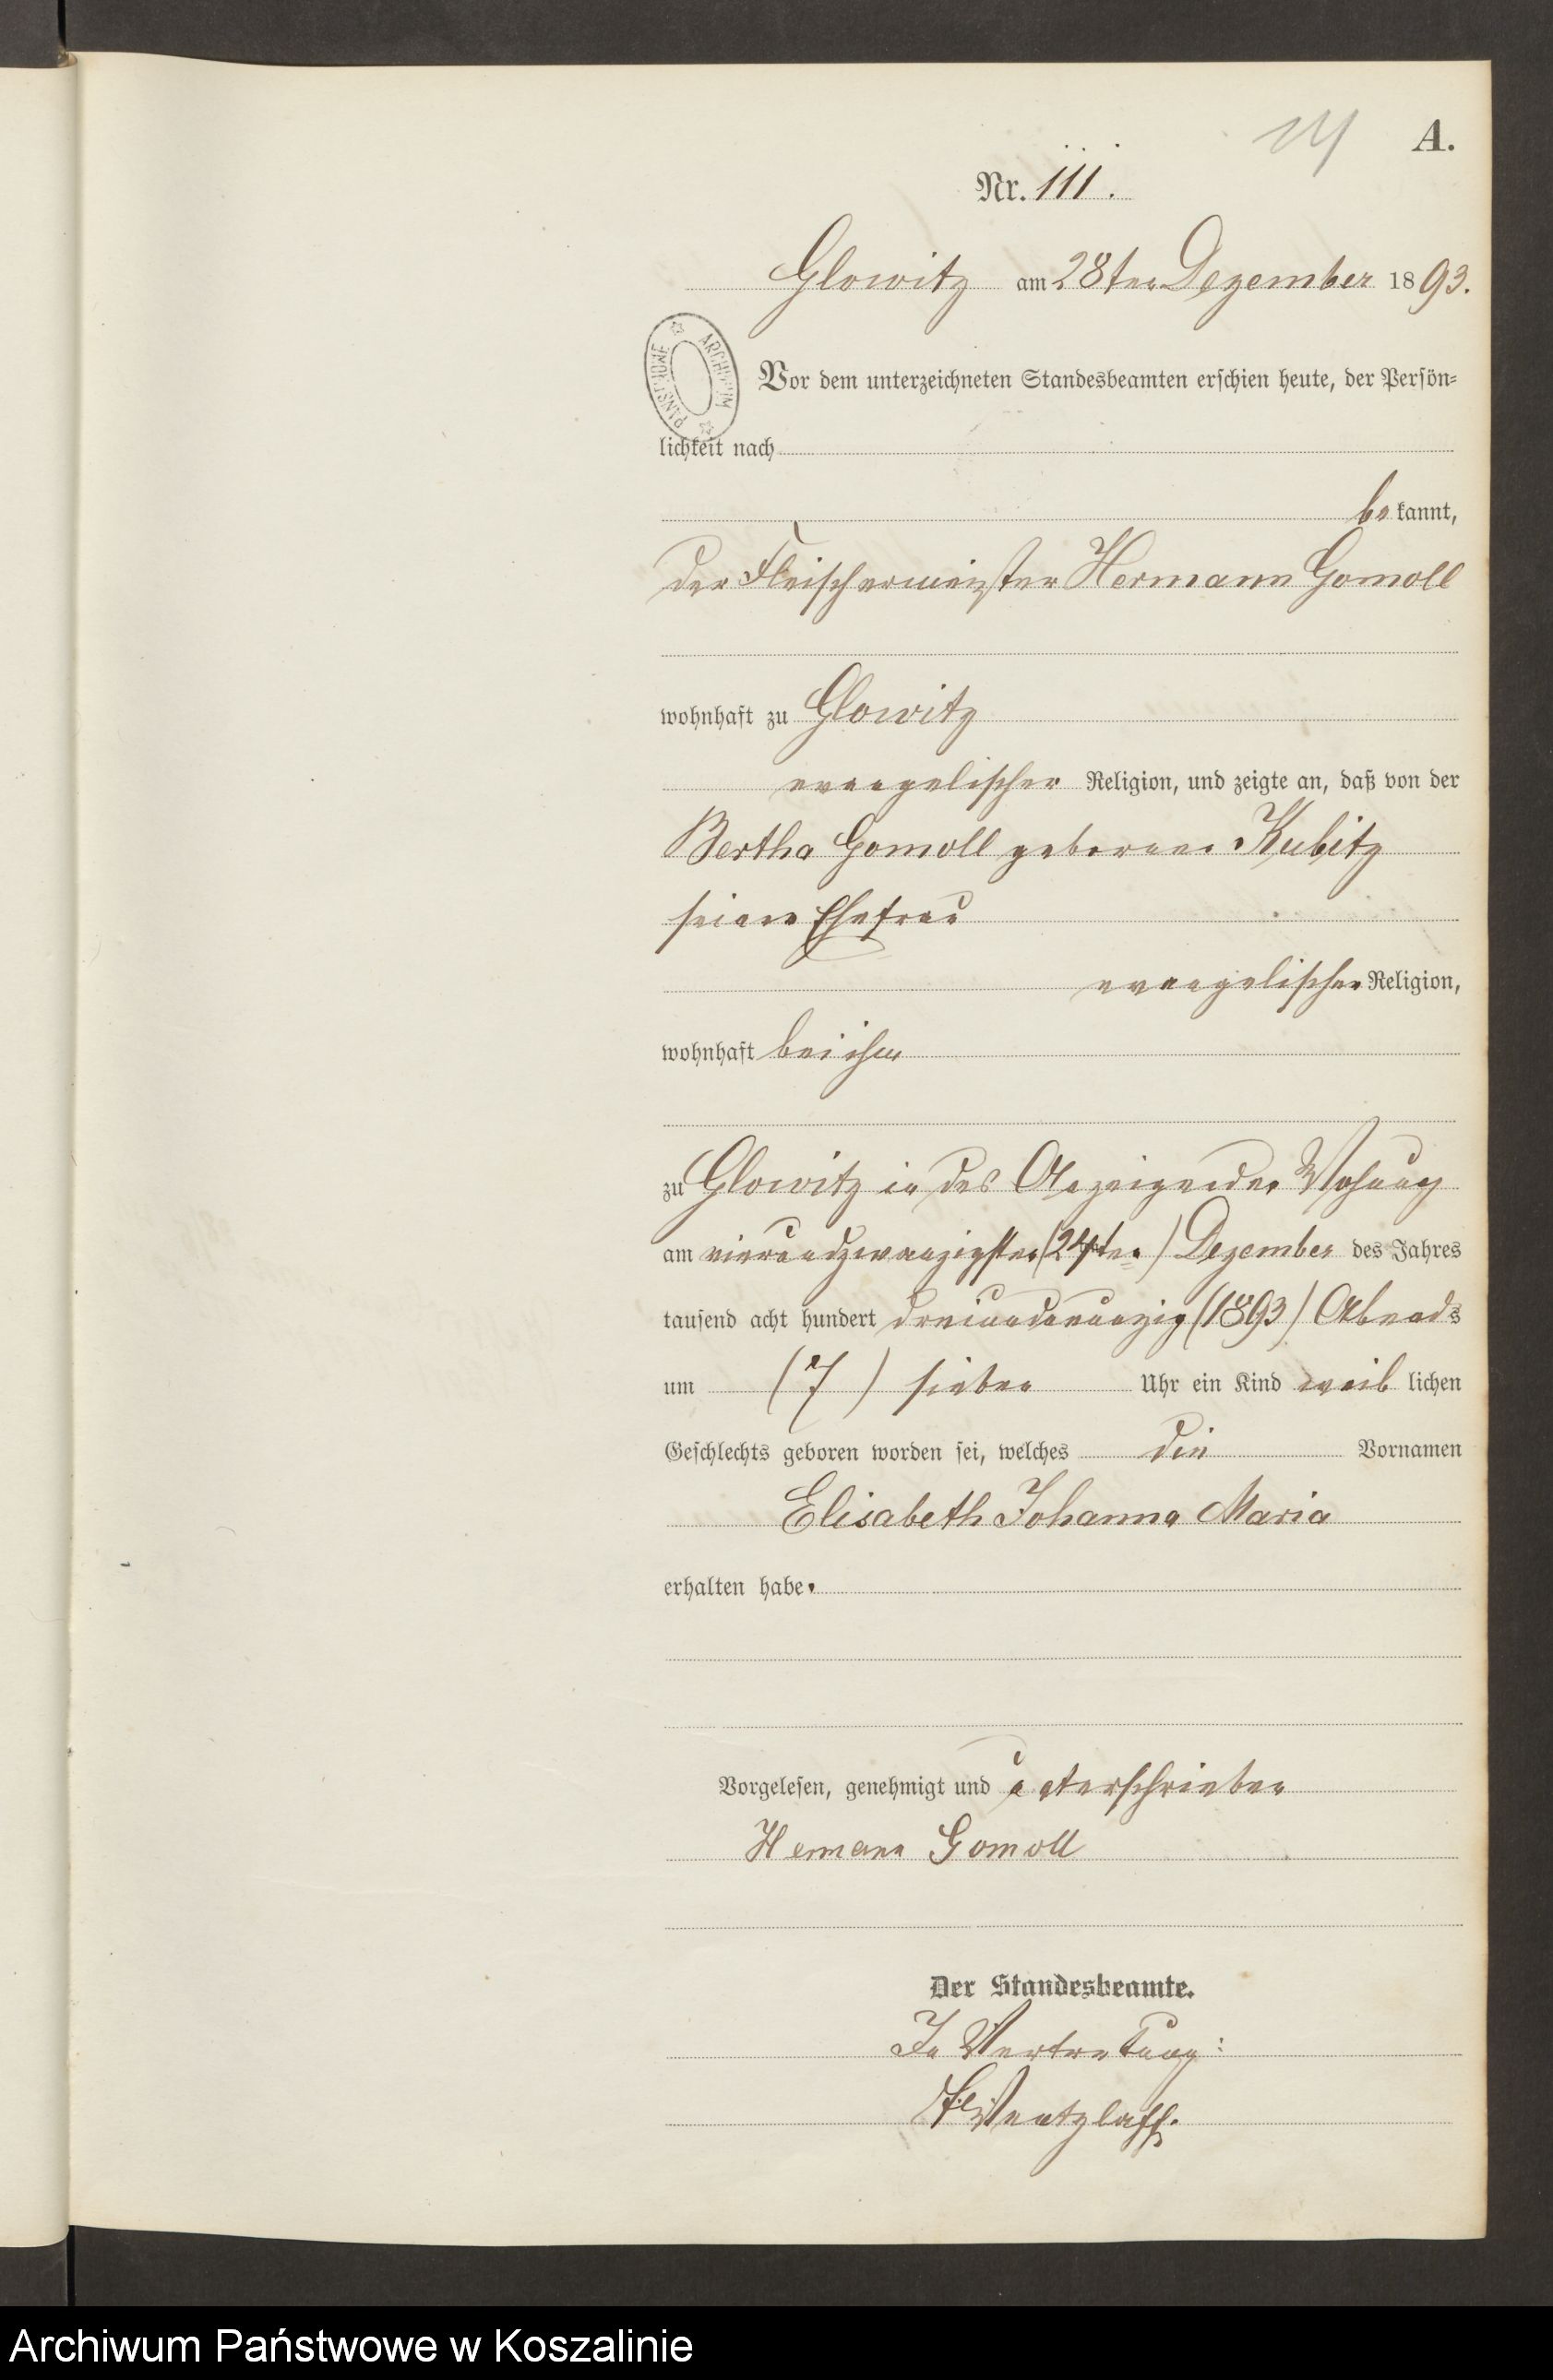 A.
Nr. 111.
Glowitz am 28ten Dezember 1893.
Vor dem unterzeichneten Standesbeamten erschien heute, der Persön=
lichkeit nach
bekannt,
der Fleischermeister Hermann Gomoll
wohnhaft zu Glowitz
evangelischer Religion, und zeigte an, daß von der
Bertha Gomoll geborene Kubitz
seiner Ehefrau
evangelischer Religion,
wohnhaft bei ihm
zu Glowitz in des Anzeigenden Wohnung
am vierundzwanzigsten (24ten) Dezember des Jahres
tausend acht hundert dreiundneunzig (1893) Abends
um (7) sieben Uhr ein Kind weiblichen
Geschlechts geboren worden sei, welches die Vornamen
Elisabeth Johanna Maria
erhalten habe.
Vorgelesen, genehmigt und unterschrieben
Hermann Gomoll
Der Standesbeamte.
In Vertretung:
Wentzlaff.
ARCHIWUM PAŃSTWOWE
Archiwum Państwowe w Koszalinie